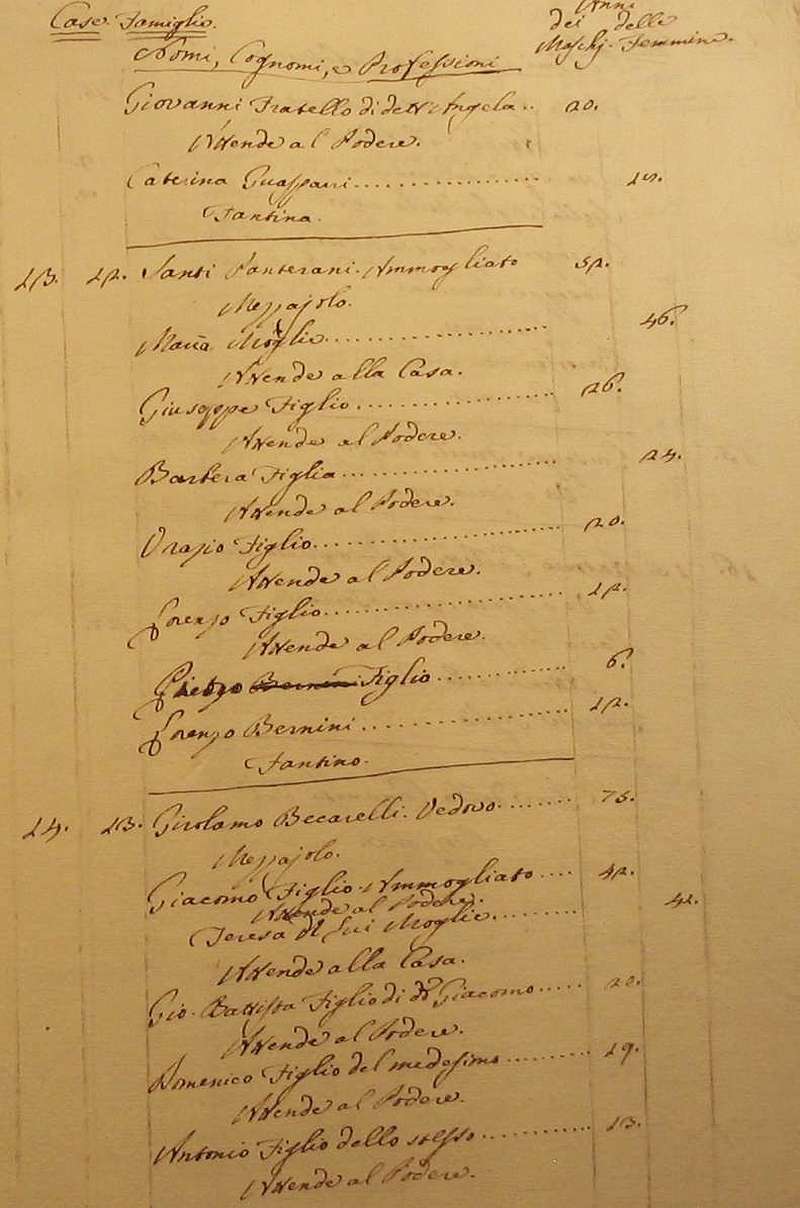 Case Famiglie. Anni
dei delle
Nomi, Cognomi, e Professioni Maschj. Femmine.
Giovanni Fratello di dett' Angela .. 20.
Attende al Podere.
Caterina Guasparri ..................
Fantina.
13. 12. Santi Panterani. Ammogliato 52.
Mezzajolo.
Maria Moglie ..................... 46.
Attende alla Casa.
Giuseppe Figlio .................. 26.
Attende al Podere.
Barbera Figlia .................. 24.
Attende al Podere.
Orazio Figlio .................. 20.
Attende al Podere.
Lorenzo Figlio .................. 12.
Attende al Podere.
Figlio .................. 6.
Lorenzo Bernini .................. 12.
Fantino.
14. 13. Girolamo Beccarelli. Vedovo ........ 75.
Mezzajolo.
Giacomo Figlio. Ammogliato .... 42.
Attende al Podere.
Teresa di Lui Moglie .......... 42.
Attende alla Casa.
Gio. Battista Figlio di do. Giacomo ..... 20.
Attende al Podere.
Domenico Figlio del medesimo ......... 19.
Attende al Podere.
Antonio Figlio dello stesso ............ 13.
Attende al Podere.